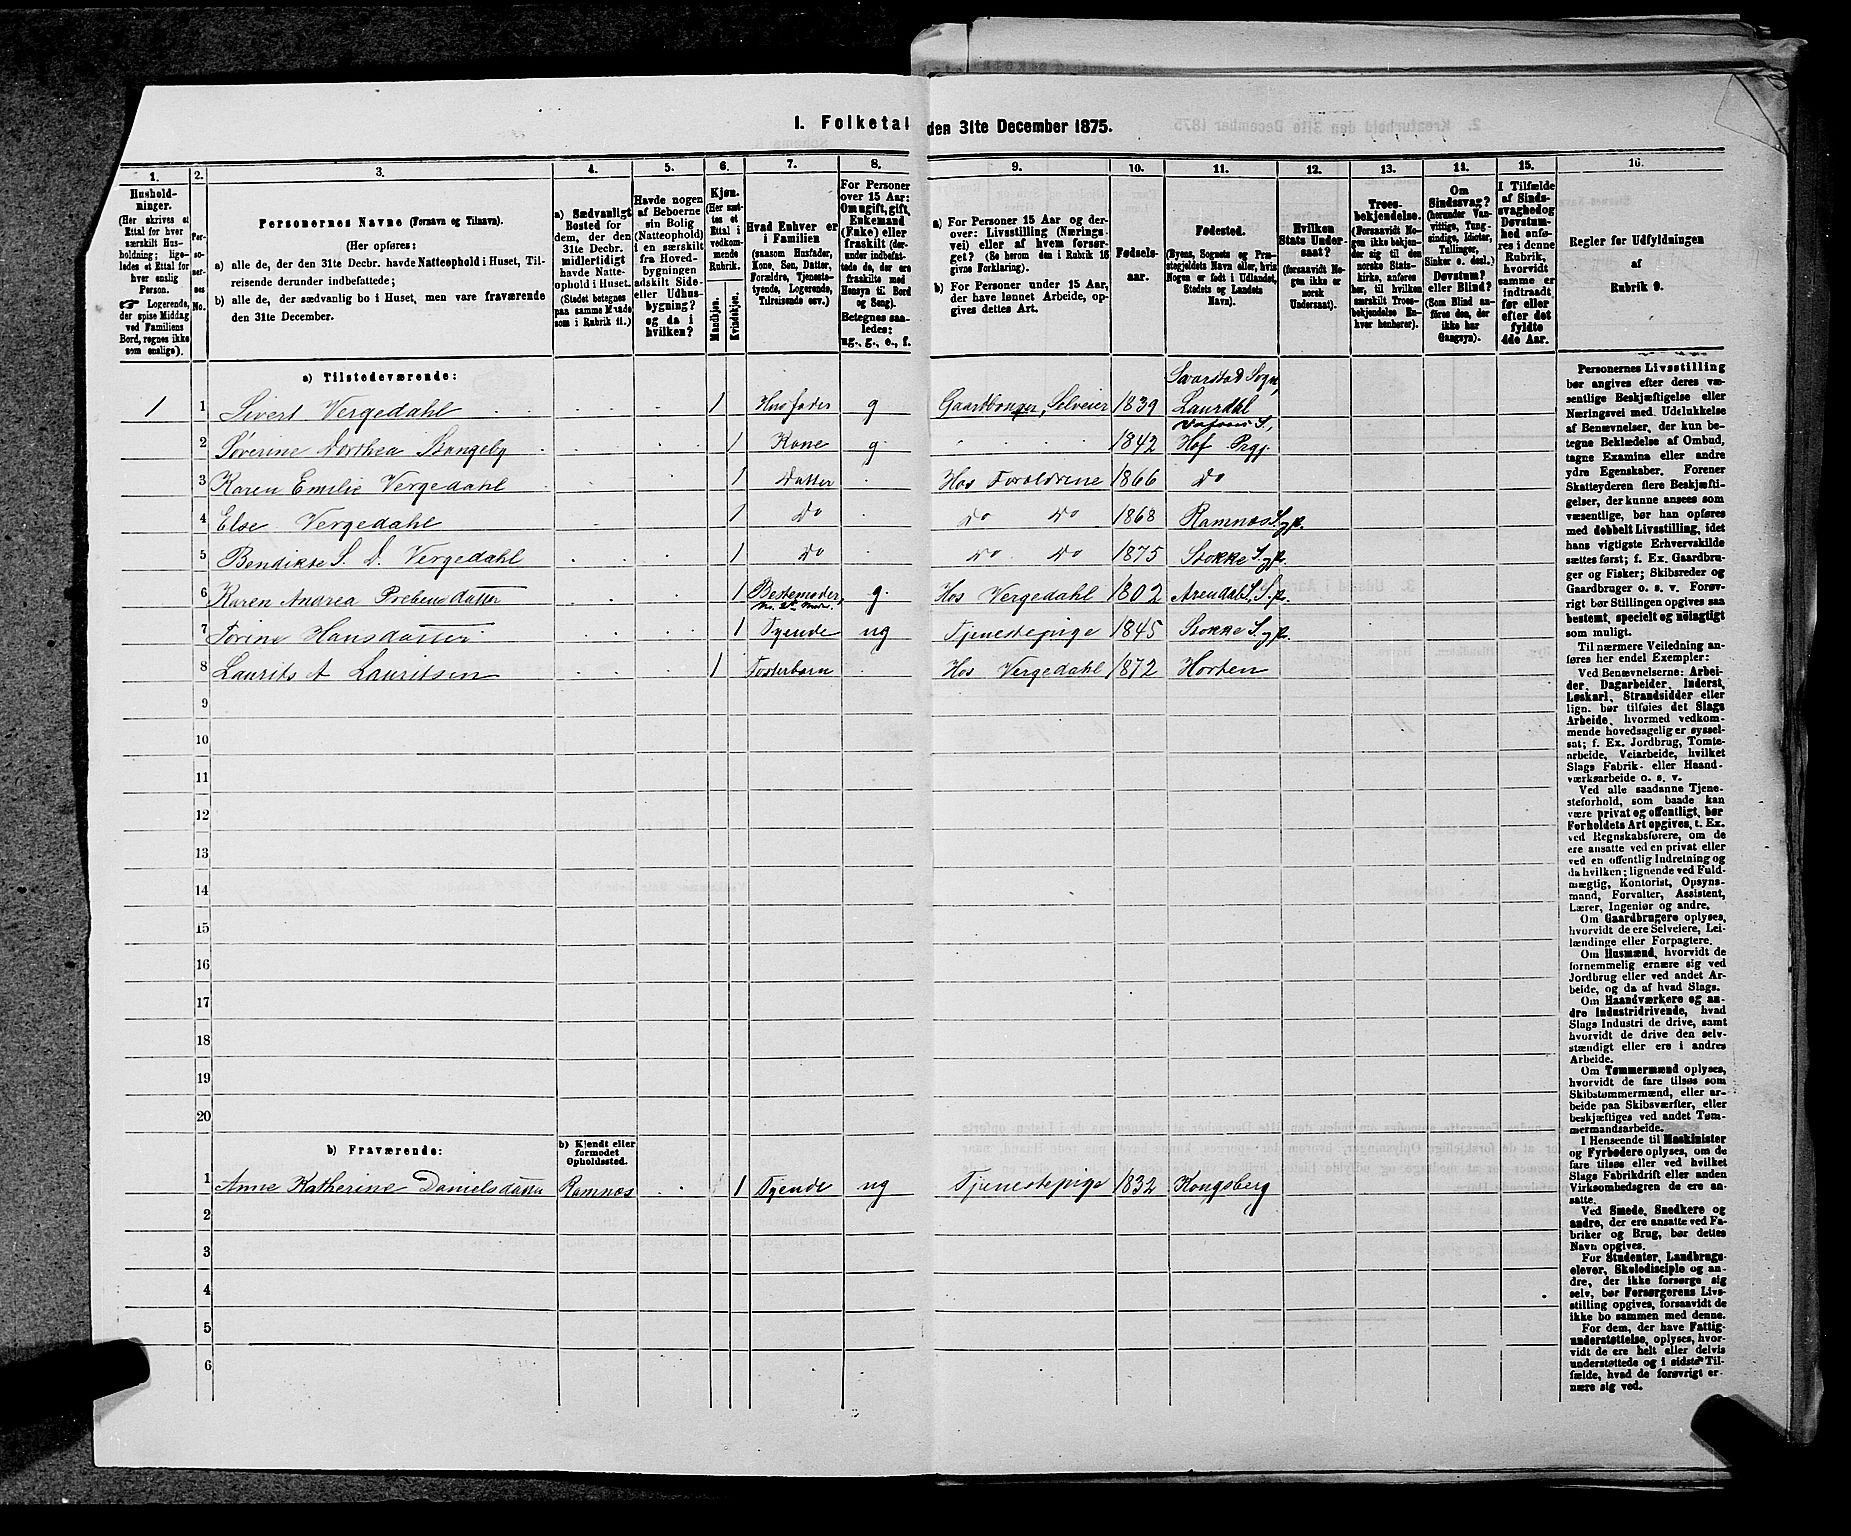 1. Folketal den 31te December 1875.
1. 2. 3. 4. 5. 6. 7. 8. 9. 10. 11. 12. 13. 14. 15. 16.
Hushold-
ninger.
(Her skrives et
Ettal for hver
særskilt Hus-
holdning; lige-
ledes et Ettal for
hver enslig
Person.
Logerende,
der spise Middag
ved Familiens
Bord, regnes ikke
som enslige).
Per-
soner-
nes
No.
Personernes Navne (Fornavn og Tilnavn).
(Her opføres:
a) alle de, der den 31te Decbr. havde Natteophold i Huset, Til-
reisende derunder indbefattede;
b) alle de, der sædvanlig bo i Huset, men vare fraværende
den 31te December.
a) Sædvanligt
Bosted for
dem, der den
31te Decbr.
midlertidigt
havde Natte-
ophold i Huset.
(Stedet betegnes
paa samme Maade
som i Rubrik 11.)
Havde nogen
af Beboerne
sin Bolig
(Natteophold)
i en særskilt
fra Hoved-
bygningen
adskilt Side-
eller Udhus-
bygning?
og da i
hvilken?
Kjøn.
(Her sæt-
tes et
Ettal i
vedkom-
mende
Rubrik.
Mandkjøn.
Kvindekjøn.
Hvad Enhver er
i Familien
(saasom Husfader,
Kone, Søn, Datter,
Forældre, Tjeneste-
tyende, Logerende,
Tilreisende osv.)
For Personer
over 15 Aar:
Om ugift, gift,
Enkemand
(Enke) eller
fraskilt (der-
under indbefat-
tede de, der ere
fraskilte med
Hensyn til Bord
og Seng).
Betegnes saa-
ledes:
ug., g., e., f.
a) For Personer 15 Aar og der-
over: Livsstilling (Nærings-
vei) eller af hvem forsør-
get? (Se herom den i Rubrik 16
givne Forklaring).
b) For Personer under 15 Aar,
der have lønnet Arbeide, op-
gives dettes Art.
Fødsels-
aar.
Fødested.
(Byens, Sognets og Præ-
stegjeldets Navn eller, hvis
Nogen er født i Udlandet,
Stedets og Landets
Navn).
Hvilken
Stats Under-
saat?
(forsaavidt No-
gen ikke er
norsk
Undersaat).
Troes-
bekjendelse.
(Forsaavidt No-
gen ikke bekjen-
der sig til den
norske Stats-
kirke, anføres
her, til hvilken
særskilt Troes-
bekjendelse En-
hver henhører).
Om
Sindssvag?
(herunder Van-
vittige, Tung-
sindige, Idioter,
Tullinger,
Sinker o. desl.)
Døvstum?
eller Blind?
(Som Blind an-
føres den, der
ikke har
Gangsyn).
I Tilfælde
af Sinds-
svaghed og
Døvstum-
hed anfø-
res i denne
Rubrik,
hvorvidt
samme er
indtraadt
før eller
efter det
fyldte
4de Aar.
Regler for Udfyldningen
af
Rubrik 9.
a) Tilstedeværende:
1 1 Sivert Vergedahl 1 Husfader g Gaardbruger, Selveier 1839 Svarstad Sogn, Laurdal
2 Sørine Dorthea Stangeby 1 Kone g 1842 Hof Prgj.
3 Karen Emilie Vergedahl 1 Datter Hos Foreldrene 1866 do
4 Else Vergedahl 1 do do do 1868 Ramnes S. g p.
5 Bendikte S. D. Vergedahl 1 do do do 1875 Stokke S. g p.
6 Karen Andrea Prebensdatter 1 Bestemoder, g. Hos Vergedahl 1802 Arendal S, S. p.
7 Torine Hansdatter 1 Tyende ug Tjenestepige 1845 Stokke S. g p.
8 Laurits A Lauritsen 1 Fosterbarn Hos Vergedahl 1872 Horten
9
10
11
12
13
14
15
16
17
18
19
20
b) Fraværende:
b) Kjendt eller
formodet
Opholdssted.
1 Anne Katherine Danielsdatter Ramnæs 1 Tyende ug Tjenestepige 1832 Kongsberg
2
3
4
5
6
Personernes Livsstilling
bør angives efter deres væ-
sentlige Beskjæftigelse eller
Næringsvei med Udelukkelse
af Benævnelser, der kun be-
tegne Beklædelse af Ombud,
tagne Examina eller andre
ydre Egenskaber. Forener
Skatteyderen flere Beskjæfti-
gelser, der kunne ansees som
væsentlige, bør han opføres
med dobbelt Livsstilling, idet
hans vigtigste Erhvervskilde
sættes først; f. Ex. Gaardbru-
ger og Fisker; Skibsreder og
Gaardbruger o. s. v. Forøv-
rigt bør Stillingen opgives saa
bestemt, specielt og nøiagtigt
som muligt.
Til nærmere Veiledning an-
føres her endel Exempler:
Ved Benævnelserne: Arbei-
der, Dagarbeider, Inderst,
Løskarl, Strandsidder eller
lign. bør tilføies det Slags
Arbeide, hvormed vedkom-
mende hovedsagelig er syssel-
sat; f. Ex. Jordbrug, Tomte-
arbeide, Veiarbeide, hvilket
Slags Fabrik- eller Haand-
værksarbeide o. s. v.
Ved alle saadanne Tjene-
steforhold, som baade kan
være privat og offentligt, bør
Forholdets Art opgives, t. Ex.
ved Regnskabsførere, om de
ere ansatte ved en privat eller
ved en offentlig Indretning og
da hvilken; lignende ved Fuld-
mægtig, Kontorist, Opsyns-
mand, Forvalter, Assistent,
Lærer, Ingeniør og andre.
Om Gaardbrugere oplyses,
hvorvidt de ere Selveiere, Lei-
lændinge eller Forpagtere.
Om Husmænd, hvorvidt de
fornemmelig ernære sig ved
Jordbrug eller ved andet Ar-
beide, og da af hvad Slags.
Om Haandværkere og an-
dre Industridrivende, hvad
Slags Industri de drive, samt
hvorvidt de drive den selv-
stændigt eller ere i andres
Arbeide.
Om Tømmermænd oplyses,
hvorvidt de fare tilsøs som
Skibstømmermænd, eller ar-
beide paa Skibsværfter, eller
beskjæftiges ved andet Tøm-
mermandsarbeide.
I Henseende til Maskinister
og Fyrbødere oplyses, om de
fare tilsøs eller ved hvilket
Slags Fabrikdrift eller anden
Virksomhedsgren de ere an-
satte.
Ved Smede, Snedkere og
andre, der ere ansatte ved Fa-
briker og Brug, bør dettes
Navn opgives.
For Studenter, Landbrugs-
elever, Skoledisciple og an-
dre, der ikke forsørge sig
selv, bør Forsørgerens Livs-
stilling opgives, forsaavidt de
ikke bo sammen med denne.
For dem, der have Fattig-
understøttelse, oplyses, hvor-
vidt de ere helt eller delvis
understøttede og i sidste Til-
fælde, hvad de forøvrigt er-
nære sig ved.